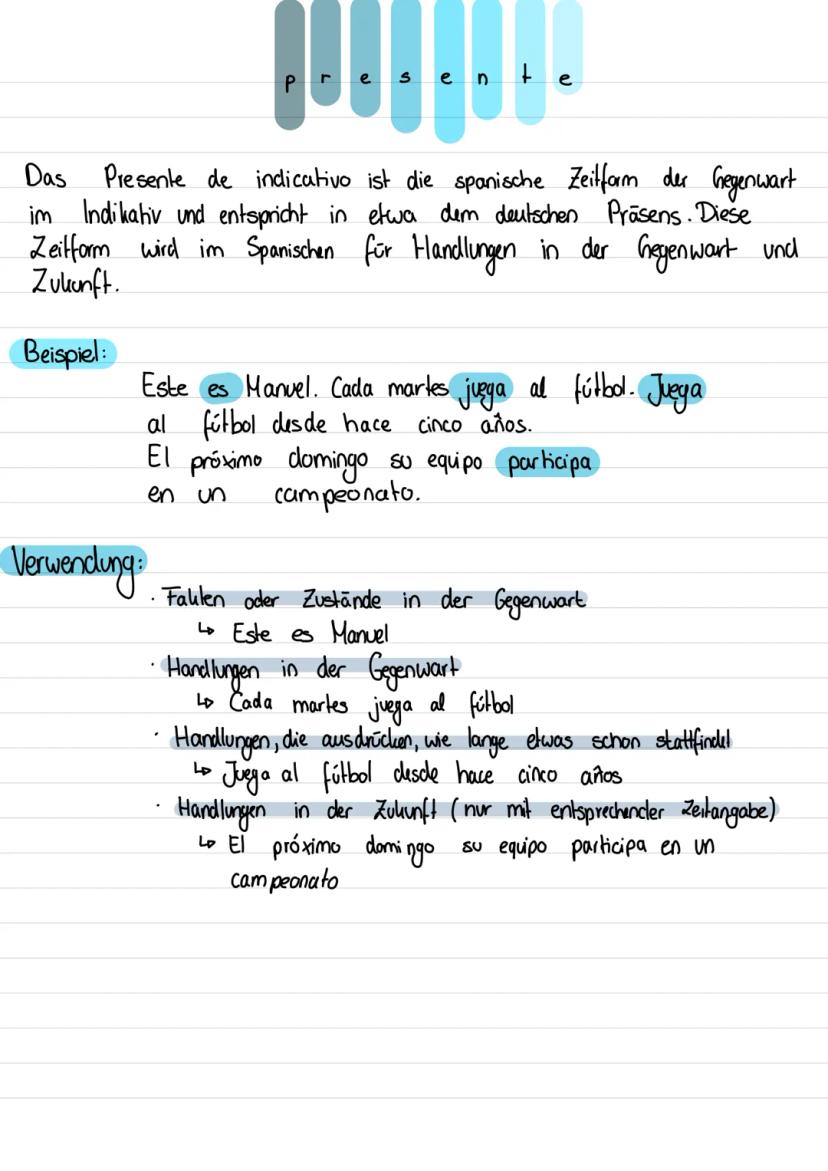 presente
Das Presente de indicativo ist die spanische Zeitform der Gegenwart
im Indikativ und entspricht in etwa dem deutschen Präsens. Diese
Zeitform wird im Spanischen für Handlungen in der Gegenwart und
Zukunft.
Beispiel:
Este es Manuel. Cada martes juega al fútbol. Juega
al fútbol desde hace cinco años.
El próximo domingo su equipo participa
en un campeonato.
Verwendung:
· Fakten oder Zustände in der Gegenwart
↳ Este es Manuel
· Handlungen in der Gegenwart
↳ Cada martes juega al fútbol
· Handlungen, die ausdrücken, wie lange etwas schon stattfindet
↳ Juega al fútbol desde hace cinco años
· Handlungen in der Zukunft (nur mit entsprechender Zeitangabe)
↳ El próximo domingo su equipo participa en un
campeonato